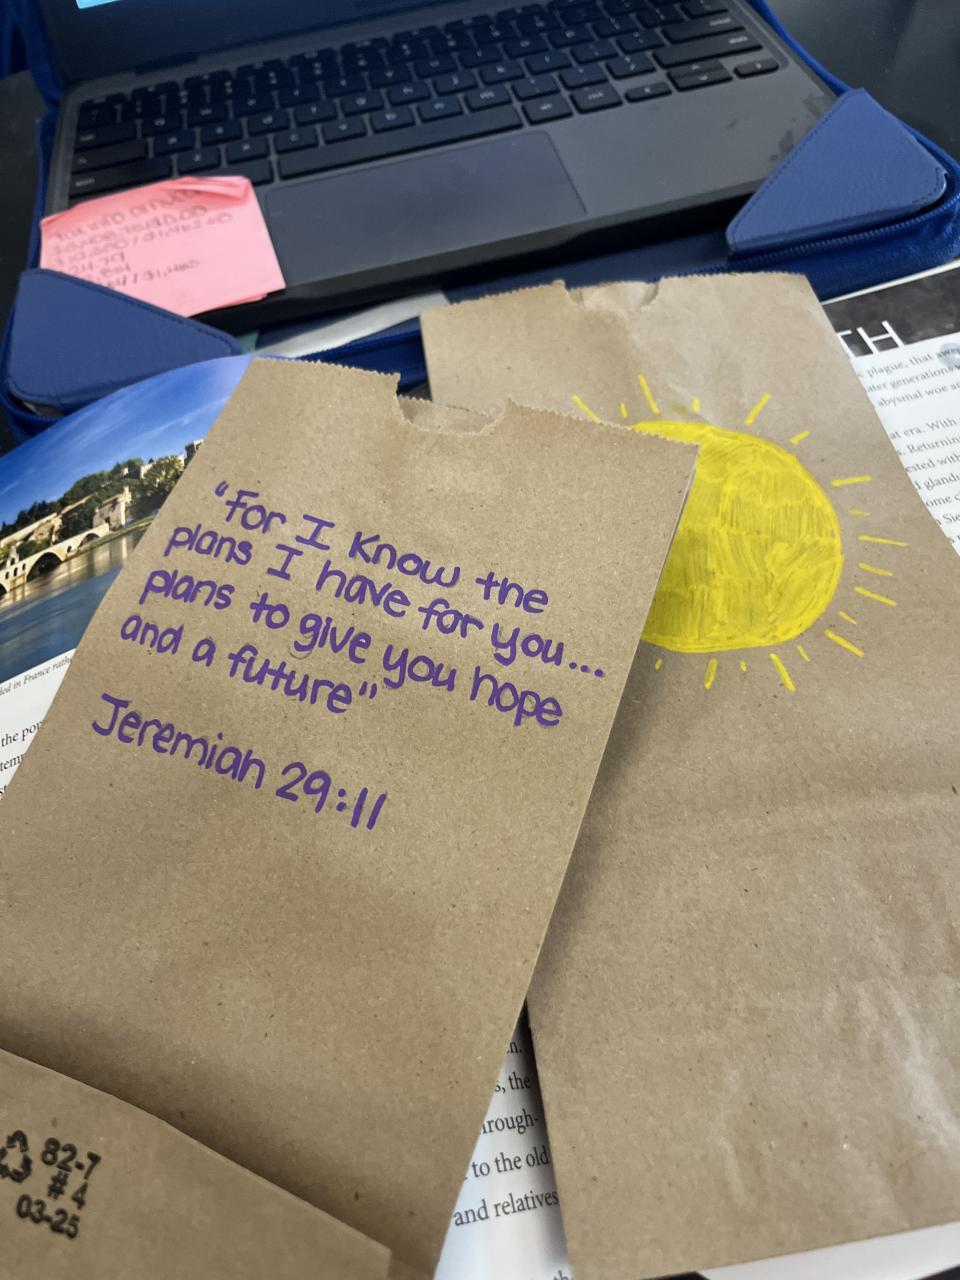 TH
plague, that
later generations
abysmal woe
at era. With
s. Returning
ested with
d glandu
ome c
n Sie
"For I know the
plans I have for you...
plans to give you hope
and a future"
Jeremiah 29:11
led in France
the
82-7
#4
03-25
s, the
hrough-
to the old
and relatives